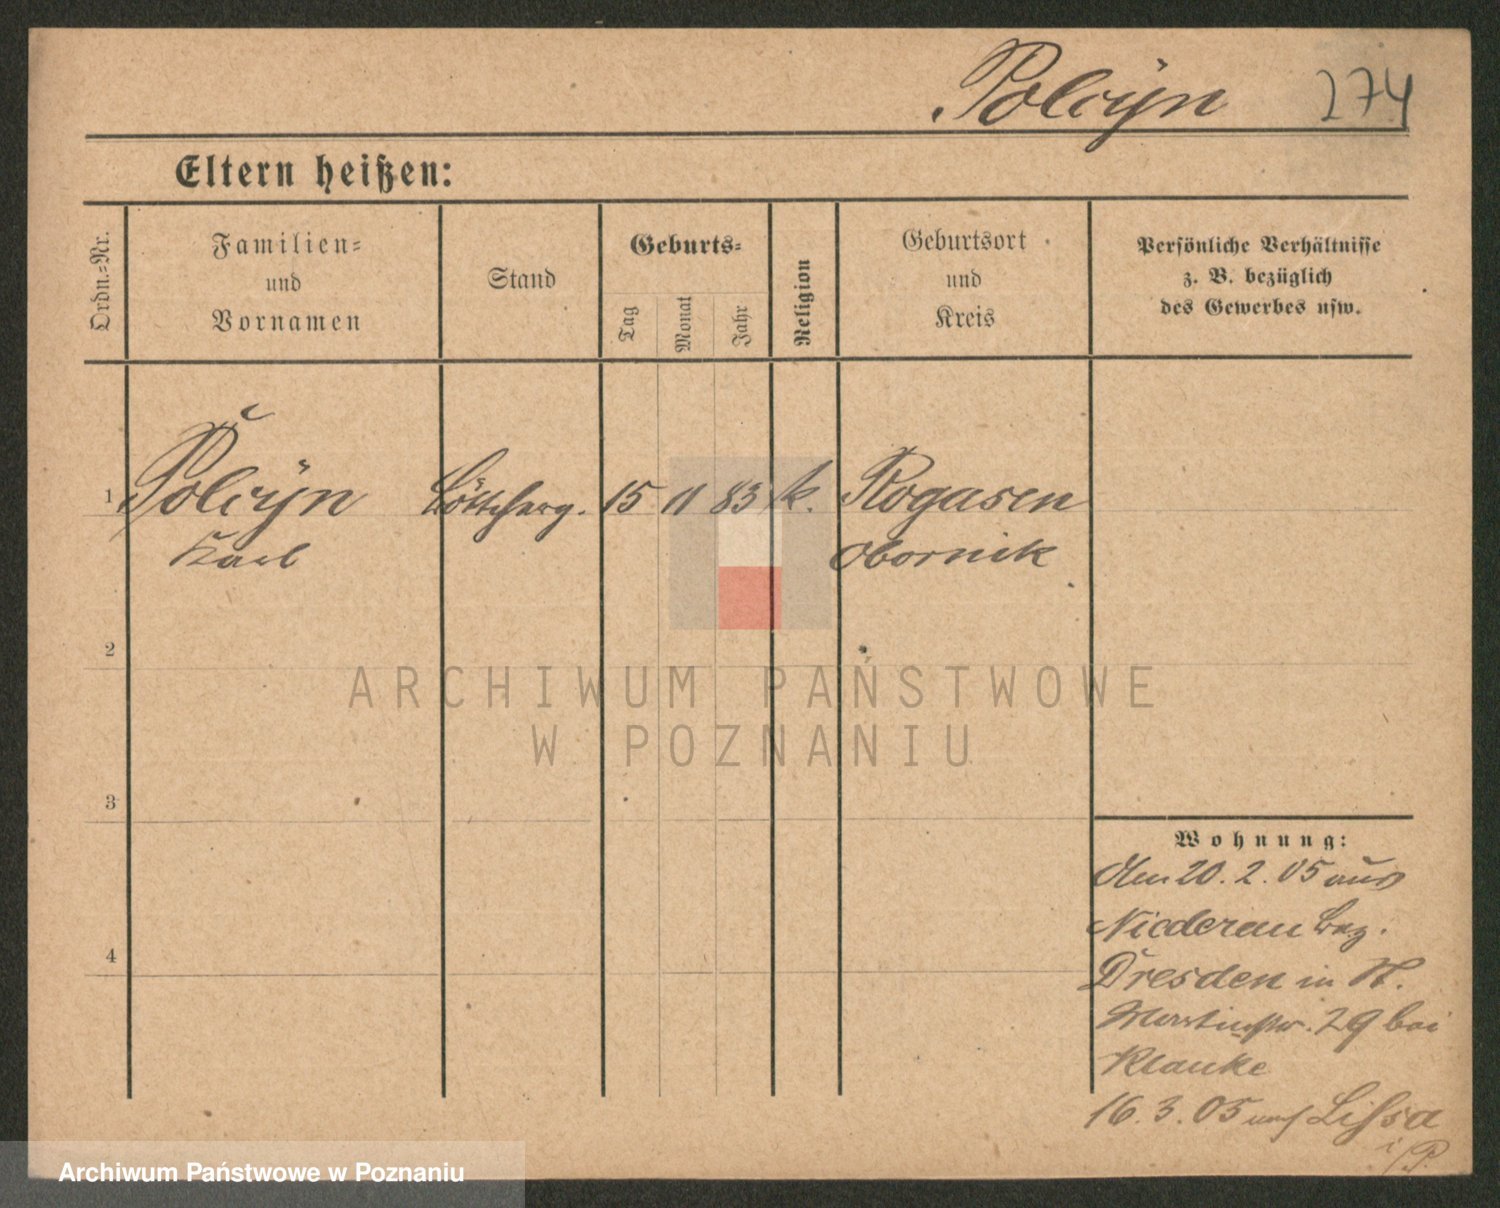 Polcyn 274
Eltern heißen:
Ordn.=Nr.
Familien=
und
Vornamen
Stand
Geburts=
Tag
Monat
Jahr
Religion
Geburtsort
und
Kreis
Persönliche Verhältnisse
z. B. bezüglich
des Gewerbes usw.
1 Polcyn Böttcherg. 15 11 83 k. Rogasen
Karl Obornik
2
3
4
Wohnung:
Am 20. 2. 05 aus
Niederau Bez.
Dresden in H.
Martinstr. 29 bei
Klauke
16. 3. 05 auf Lissa
i/P.
ARCHIWUM PAŃSTWOWE
W POZNANIU
Archiwum Państwowe w Poznaniu